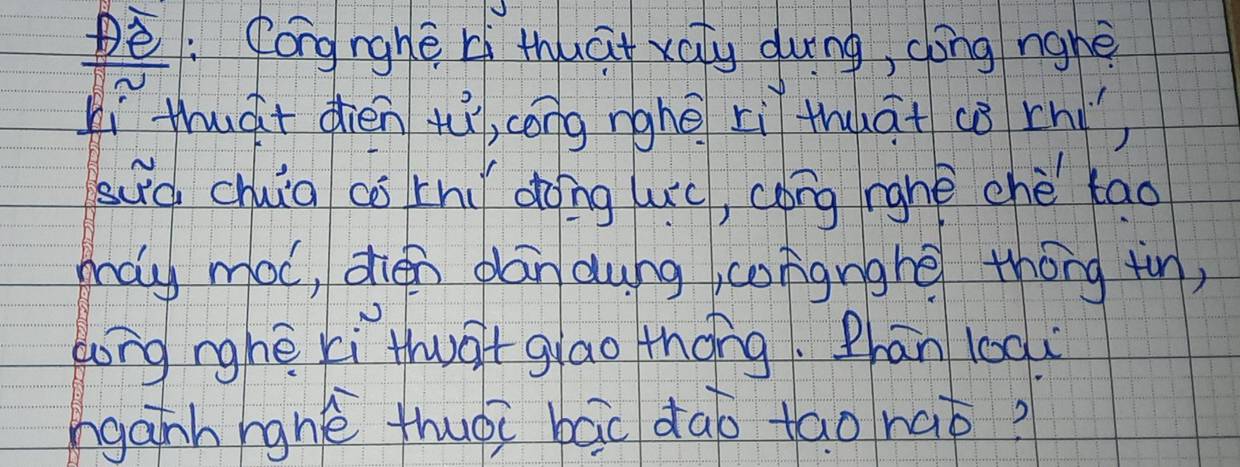 Đề: Công nghệ kĩ thuật xây dựng, công nghệ
kĩ thuật điện tử, công nghệ kĩ thuật cơ khí,
sửa chữa cơ khí động lực, công nghệ chế tạo
máy móc, điện dân dụng, công nghệ thông tin,
công nghệ kĩ thuật giao thông. Phân loại
ngành nghề thuộc bậc đào tạo nào?